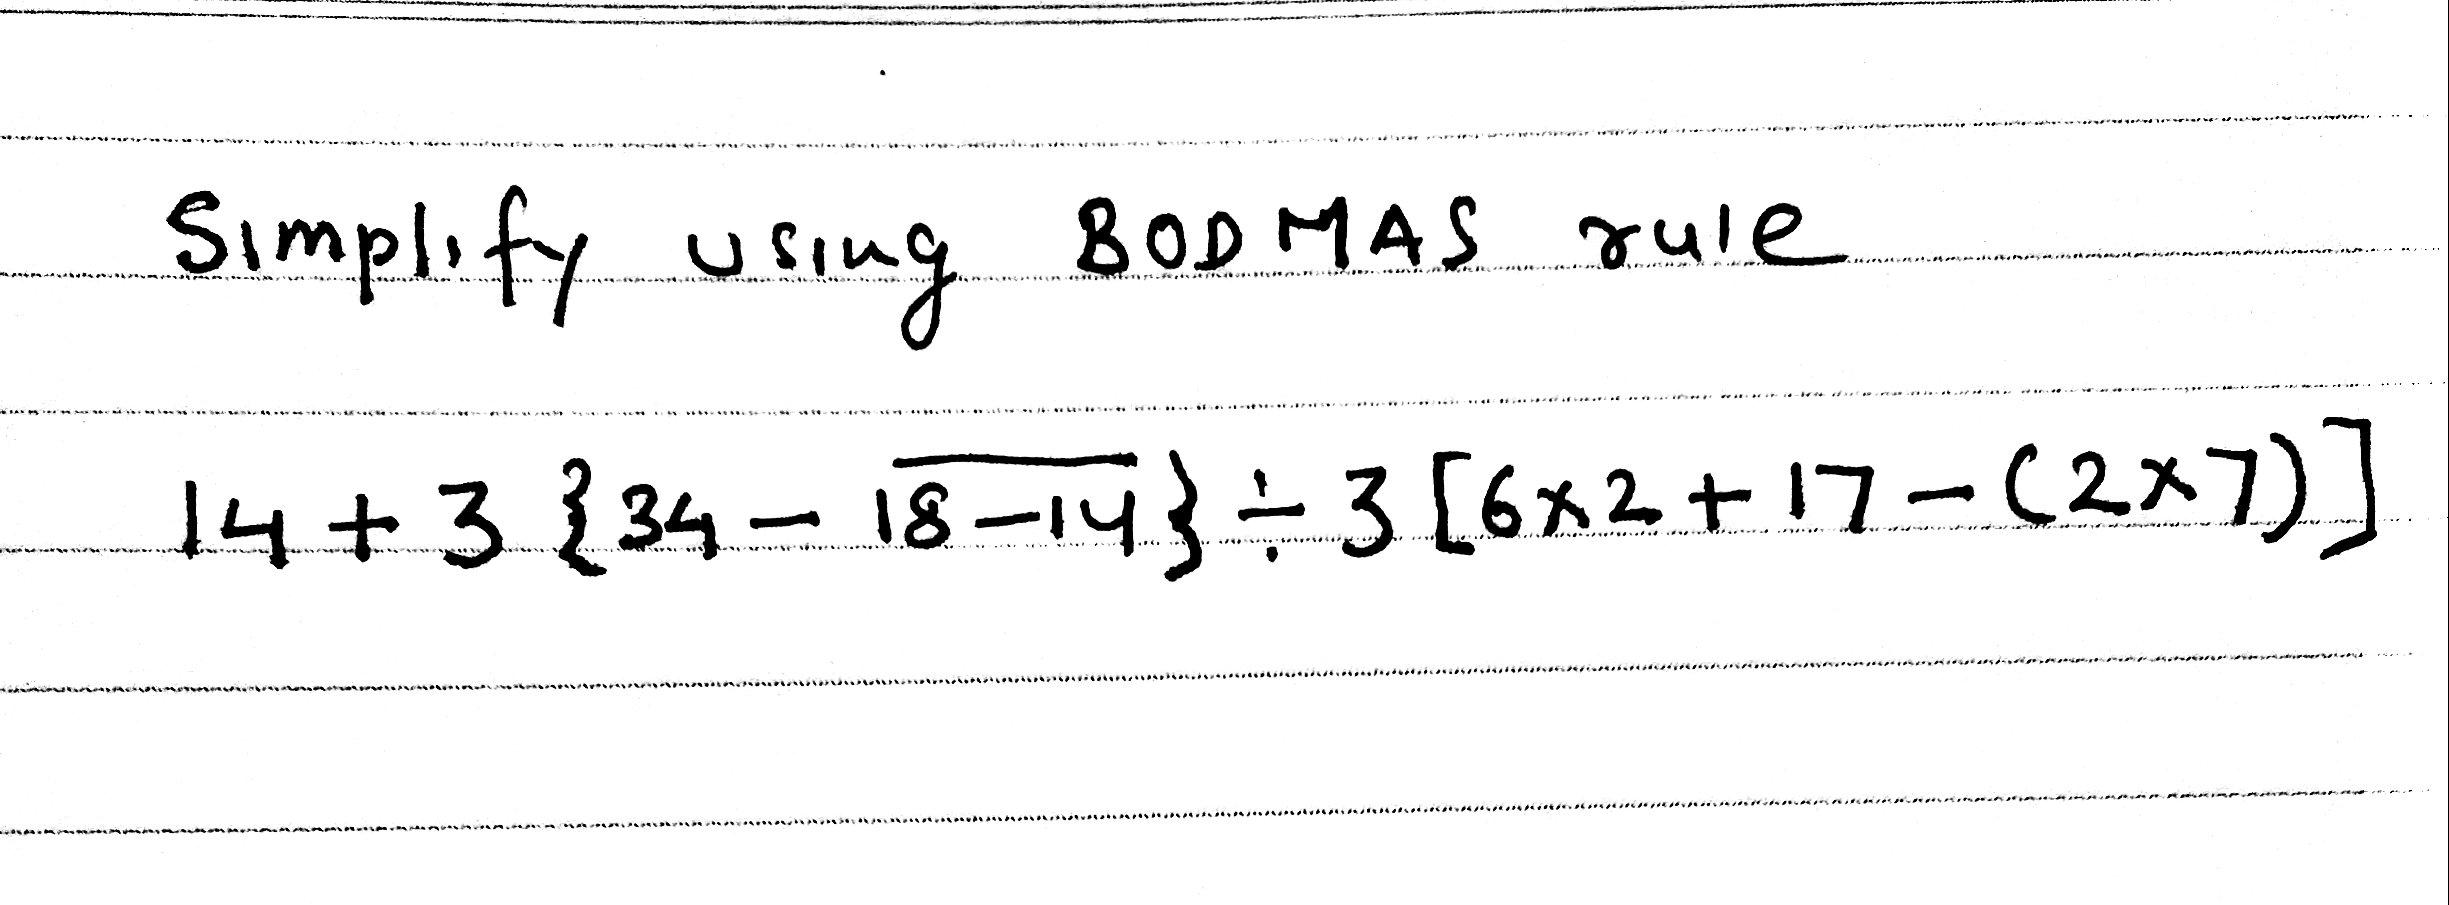 Simplify using BODMAS rule
14 + 3 {34 - \overline{18 - 14}} ÷ 3 [6 × 2 + 17 - (2 × 7)]